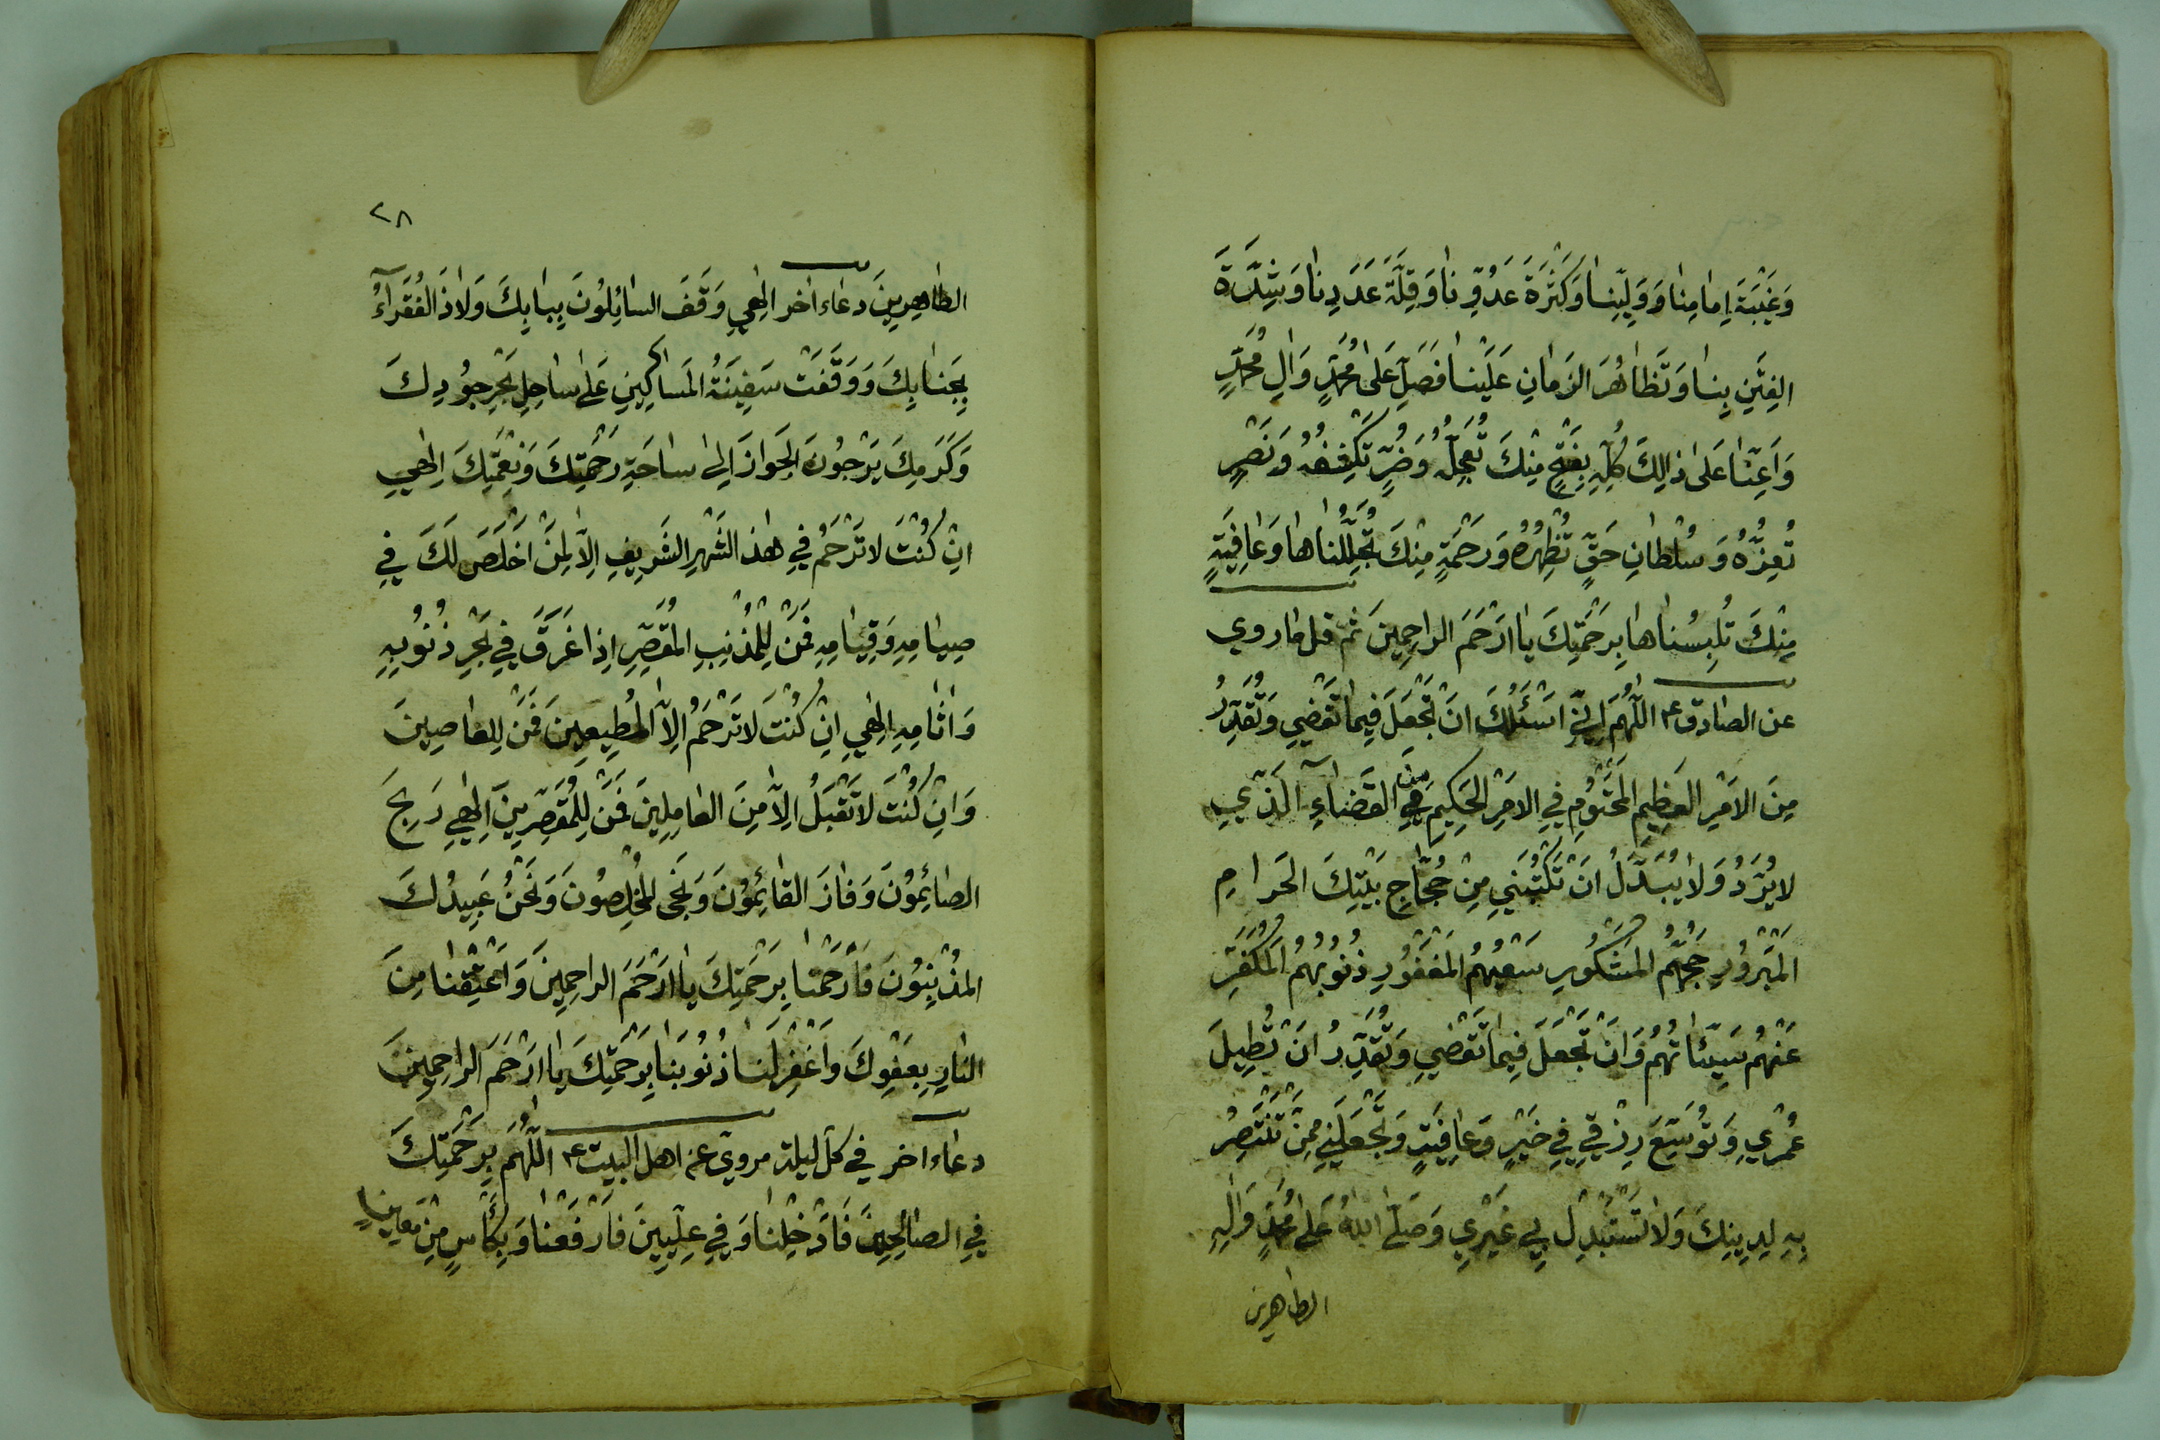 وَغَيْبَةَ اِمامِنا وَوَلِيِّنا وَكَثْرَةَ عَدُوِّنا وَقِلَّةَ عَدَدِنا وَشِدَّةَ
الفِتَنِ بِنا وَتَظاهُرَ الزَمانِ عَلَيْنا فَصَلِّ عَلىٰ مُحَمَّدٍ وَالِ مُحَمَّدٍ
وَاَعِنّا عَلىٰ ذلِكَ كُلِّهِ بِفَتْحٍ مِنْكَ تُعَجِّلُهُ وَضُرٍّ تَكْشِفُهُ وَنَصْرٍ
تُعِزُّهُ وَسُلْطانِ حَقٍّ تُظْهِرُهُ وَرَحْمَةٍ مِنْكَ تُجَلِّلُناها وَعافِيَةٍ
مِنْكَ تُلبِسُناها بِرَحْمَتِكَ يا اَرْحَمَ الراحِمِينَ ثم قل ما روي
عن الصادق ع اَللّهُمَّ اِنِّي اَسْئَلُكَ اَنْ تَجْعَلَ فِيما تَقْضِي وَتُقَدِّرُ
مِنَ الاَمْرِ العَظِيمِ المَحْتُومِ فِي الاَمْرِ الحَكِيمِ مِنَ القَضاءِ الَّذِي
لا يُرَدُّ وَلا يُبَدَّلُ اَنْ تَكْتُبَنِي مِنْ حُجّاجِ بَيْتِكَ الحَرامِ
المَبْرُورِ حَجُّهُمْ المَشْكُورِ سَعْيُهُمْ المَغْفُورِ ذُنُوبُهُمْ المُكَفَّرِ
عَنْهُمْ سَيِّئاتُهُمْ وَاَنْ تَجْعَلَ فِيما تَقْضِي وَتُقَدِّرُ اَنْ تُطِيلَ
عُمْرِي وَتُوَسِّعَ رِزْقِي فِي خَيْرٍ وَعافِيَةٍ وَتَجْعَلَنِي مِمَّنْ تَنْتَصِرُ
بِهِ لِدِينِكَ وَلا تَسْتَبْدِلْ بِي غَيْرِي وَصَلَّى اللهُ عَلىٰ مُحَمَّدٍ وَالِهِ
الطاهرين
٢٨
الطاهِرِينَ دعاء اخر اِلهِي وَقَفَ السائِلُونَ بِبابِكَ وَلاذَ الفُقَرآءُ
بِجَنابِكَ وَوَقَفَتْ سَفِينَةُ المَساكِينِ عَلىٰ ساحِلِ بَحْرِ جُودِكَ
وَكَرَمِكَ يَرْجُونَ الجَوازَ اِلىٰ ساحَةِ رَحْمَتِكَ وَنِعْمَتِكَ اِلهِي
اِنْ كُنْتَ لا تَرْحَمُ فِي هذا الشَهْرِ الشَرِيفِ اِلّا لِمَنْ اَخْلَصَ لَكَ فِي
صِيامِهِ وَقِيامِهِ فَمَنْ لِلْمُذْنِبِ المُقَصِّرِ اِذا غَرَقَ فِي بَحْرِ ذُنُوبِهِ
وَاثامِهِ اِلهِي اِنْ كُنْتَ لا تَرْحَمُ اِلّا المُطِيعِينَ فَمَنْ لِلعاصِينَ
وَاِنْ كُنْتَ لا تَقْبَلُ اِلّا مِنَ العامِلِينَ فَمَنْ لِلمُقَصِّرِينَ اِلهِي رَبِحَ
الصائِمُونَ وَفازَ القائِمُونَ وَنَجَى المُخْلِصُونَ وَنَحْنُ عَبِيدُكَ
المُذْنِبُونَ فَارْحَمْنا بِرَحْمَتِكَ يا اَرْحَمَ الراحِمِينَ وَاَعْتِقْنا مِنَ
النارِ بِعَفْوِكَ وَاغْفِرْ لَنا ذُنُوبَنا بِرَحْمَتِكَ يا اَرْحَمَ الراحِمِينَ
دعاء اخر في كل ليلة مروي عن اهل البيت ع اَللّهُمَّ بِرَحْمَتِكَ
فِي الصالِحِينَ فَادْخِلْنا وَفِي عِلِّيِّينَ فارْفَعْنا وَبِكَأْسٍ مِنْ مَعِينٍ